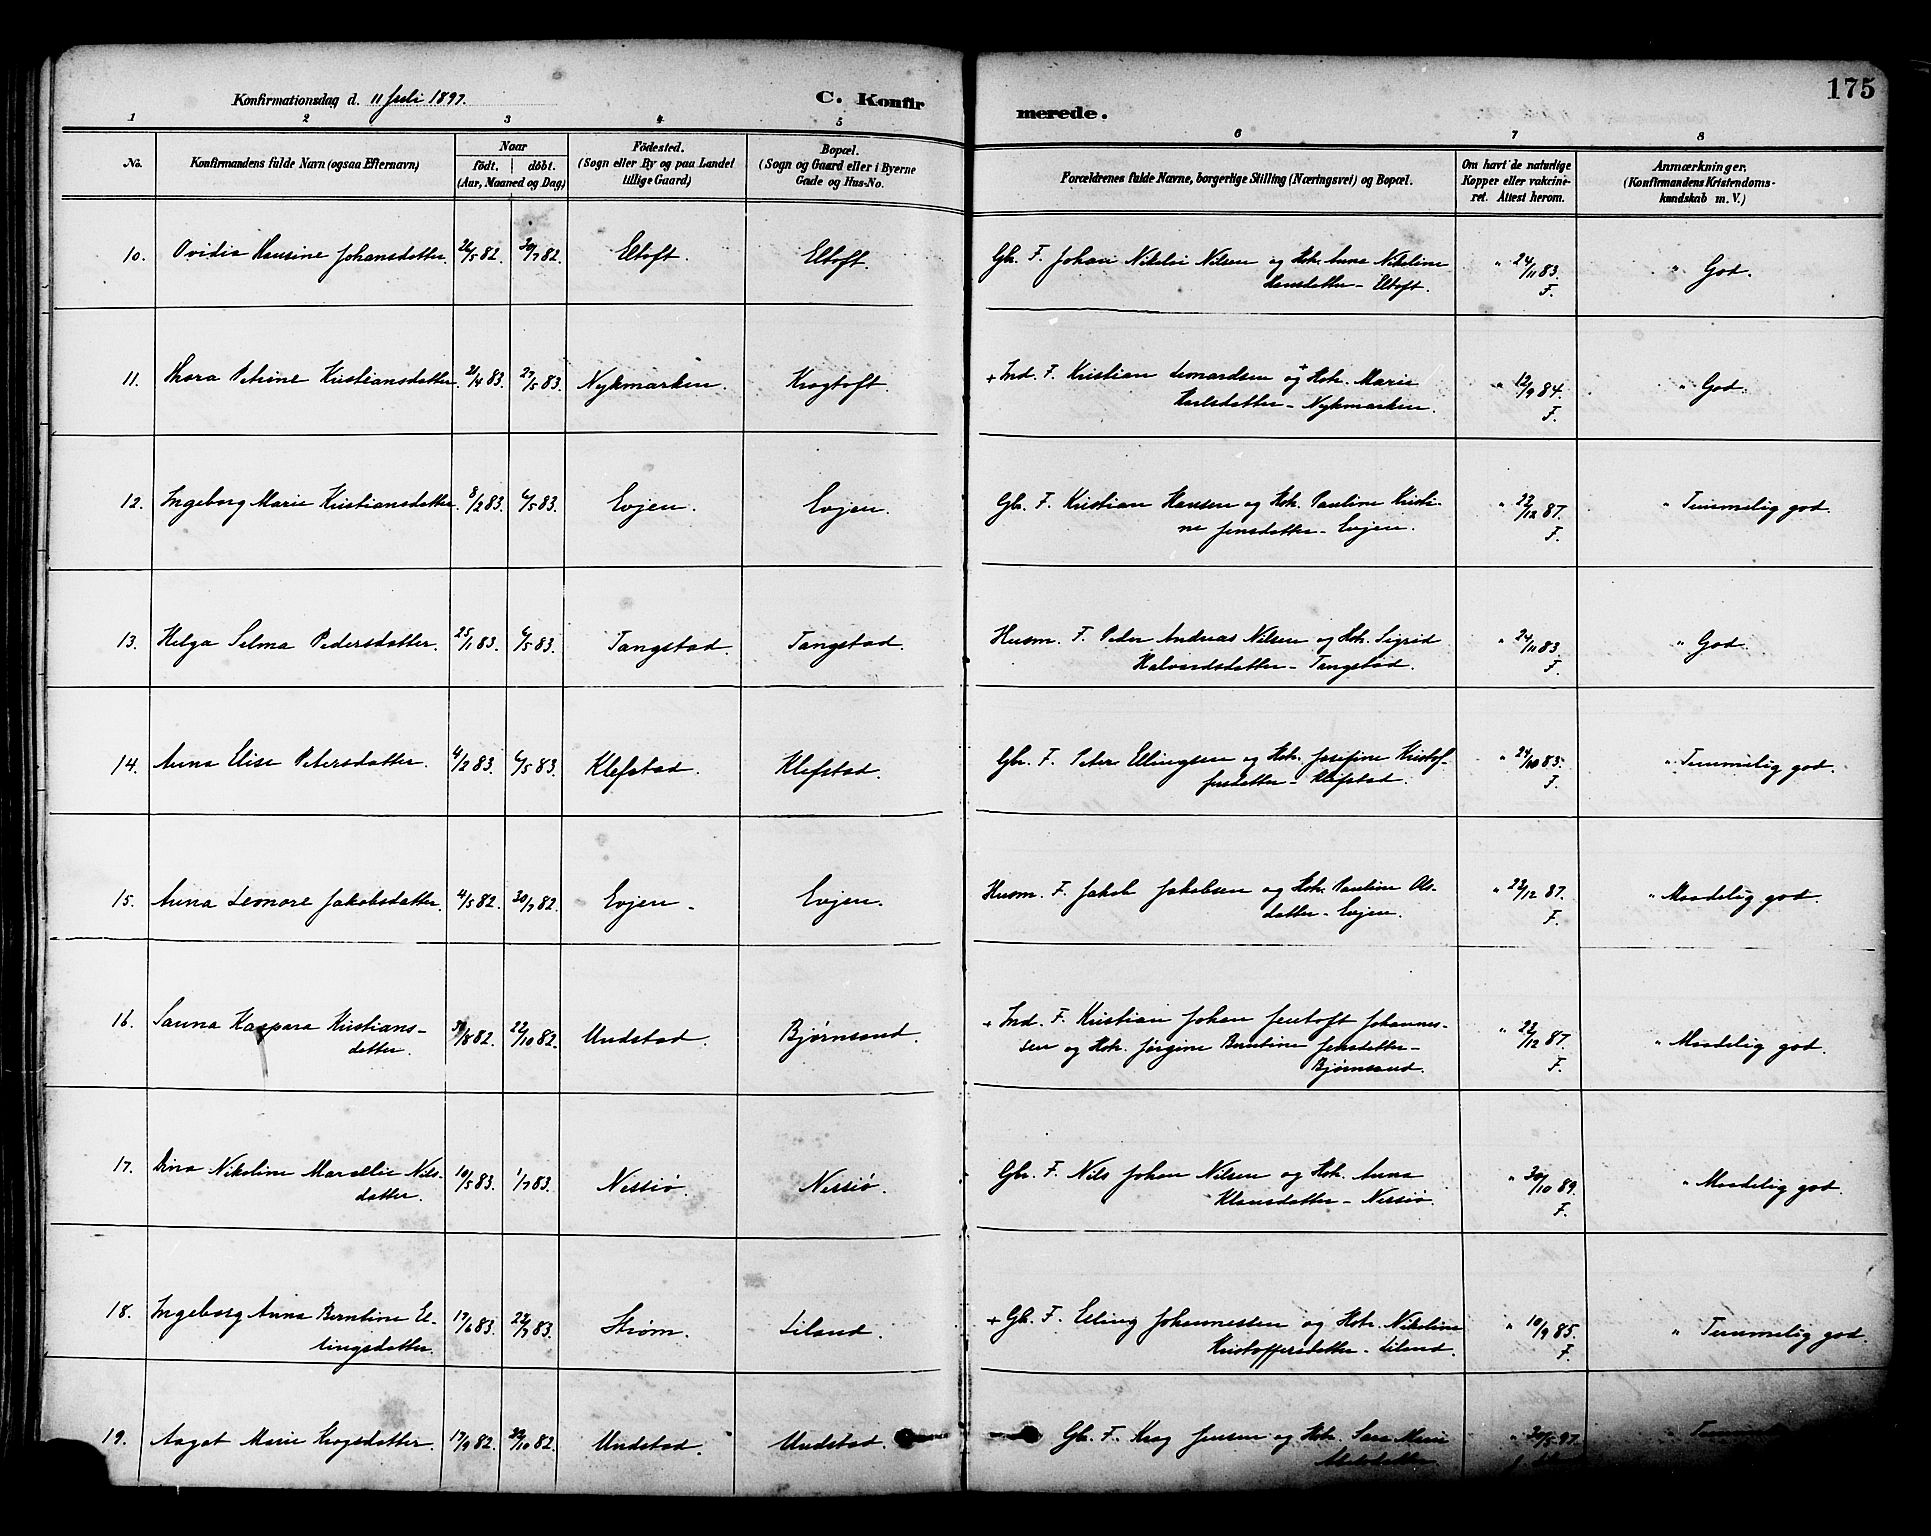 175
Konfirmationsdag d. 11 Juli 1897.
C. Konfirmerede.
1 2 3 4 5 6 7 8
No.
Konfirmandens fulde Navn (ogsaa Efternavn)
Naar
födt. döbt.
(Aar, Maaned og Dag)
Födested.
(Sogn eller By og paa Landet
tillige Gaard)
Bopæl.
(Sogn og Gaard eller i Byerne
Gade og Hus-No.
Forældrenes fulde Navne, borgerlige Stilling (Næringsvei) og Bopæl.
Om havt de naturlige
Kopper eller vakcine-
ret. Attest herom.
Anmærkninger.
(Konfirmandens Kristendoms-
kundskab m. V.)
10. Ovidia Hansine Johansdatter. 26/5 82. 30/7 82. Eltoft. Eltoft. Gbr. F. Johan Nikolai Nilsen og Hstr. Anna Nikoline " 24/11 83. " God.
Hansdatter - Eltoft. F.
11. Thora Petrine Kristiansdatter. 21/4 83. 27/5 83. Nykmarken. Krogtoft. + Ind. F. Kristian Leonardsen og + Hstr. Marie " 12/9 84. " God.
Karlsdatter - Nykmarken. F.
12. Ingeborg Marie Kristiansdatter. 8/2 83. 6/5 83. Evjen. Evjen. Gbr. F. Kristian Hansen og Hstr. Pauline Kristi- " 22/12 87. " Temmelig god.
ne Jensdatter - Evjen. F.
13. Helga Selma Pedersdatter. 25/1 83. 6/5 83. Tangstad. Tangstad. Husm. F. Peder Andreas Nilsen og Hstr. Sigrid " 24/11 83. " God.
Halvardsdatter - Tangstad. F.
14. Anna Elise Petersdatter. 4/2 83. 6/5 83. Klefstad. Klefstad. Gbr. F. Peter Ellingsen og Hstr. Josefine Kristof- " 24/10 83. " Temmelig god.
fersdatter - Klefstad. F.
15. Anna Leonore Jakobsdatter. 4/5 82. 30/7 82. Evjen. Evjen. Husm. F. Jakob Jakobsen og Hstr. Pauline Ols- " 22/12 87. " Maadelig god.
datter - Evjen. F.
16. Sanna Kaspara Kristians- /8 82. 22/10 82. Undstad. Bjørnsand. + Ind. F. Kristian Johan Jentoft Johannes- " 22/12 87. " Maadelig god.
datter. sen og Hstr. Jørgine Berntine Jensdatter -
Bjørnsand. F.
17. Dina Nikoline Marselie Nils- 10/5 83. 1/7 83. Nessiø. Nessiø. Gbr. F. Nils Johan Nilsen og Hstr. Anna " 30/10 89. " Maadelig god.
datter. Klausdatter - Nessiø. F.
18. Ingeborg Anna Berntine El- 17/6 83. 22/7 83. Strøm. Liland. + Gbr. F. Elling Johannessen og Hstr. Nikoline " 10/9 85. " Temmelig god.
lingsdatter. Kristoffersdatter - Liland. F.
19. Aagot Marie Krogsdatter. 17/9 82. 22/10 82. Undstad. Undstad. Gbr. F. Krog Jensen og Hstr. Sara Marie " 30/5 97.